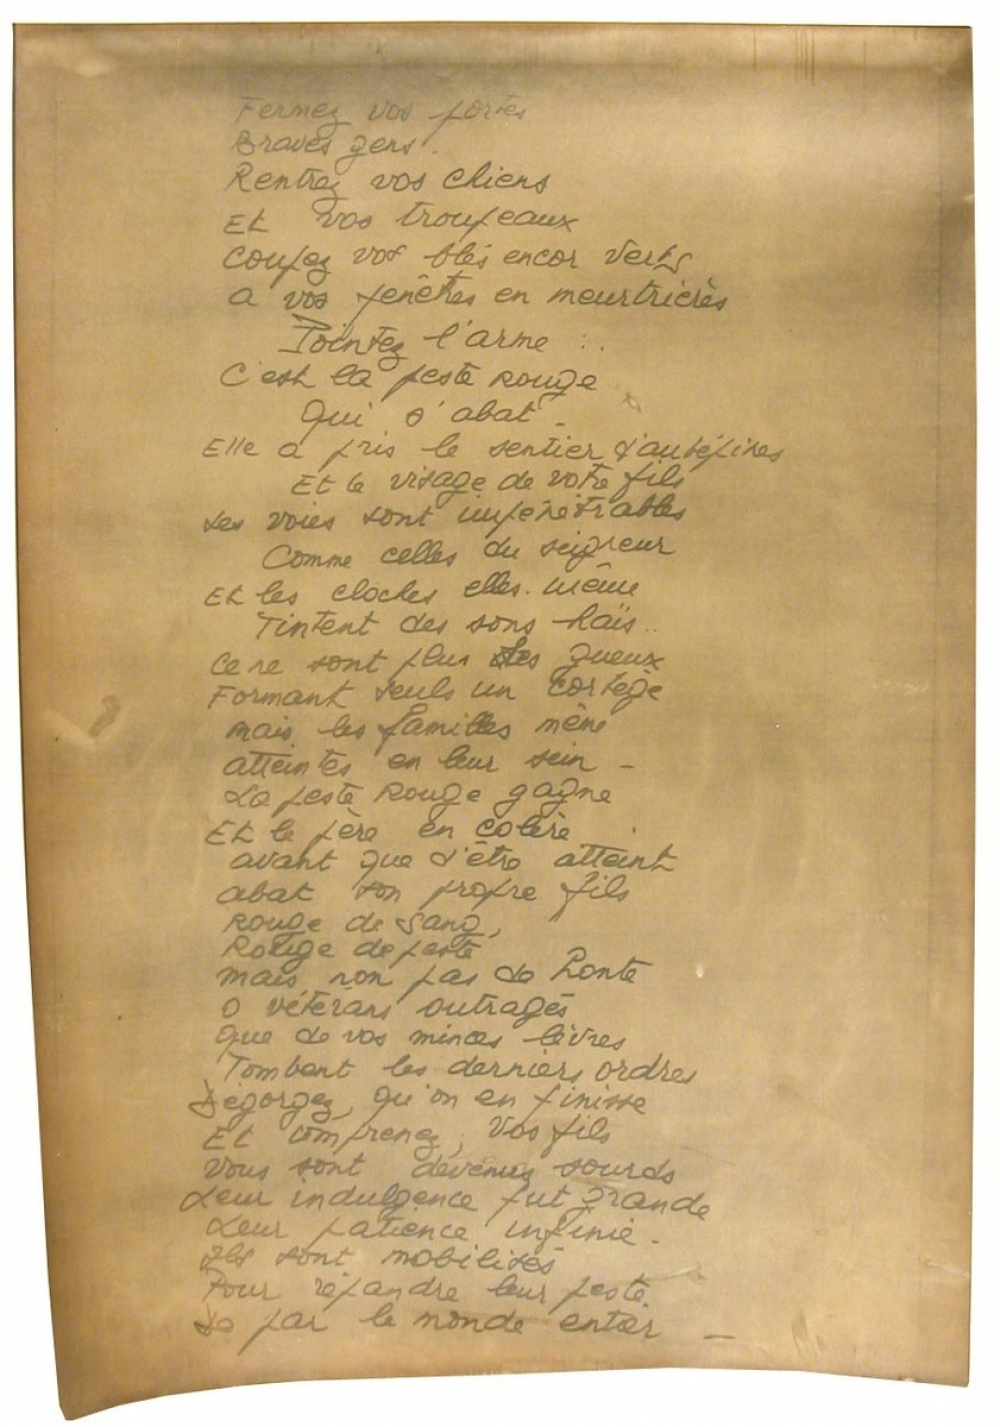 Fermez vos portes
Braves gens.
Rentrez vos chiens
Et vos troupeaux
Coupez vos blés encor verts
a vos fenêtres en meurtrières
Pointez l'arme :.
C'est la peste rouge
Qui s'abat -
Elle a pris le sentier d'aubépines
Et le visage de votre fils
Ses voies sont impénétrables
Comme celles du seigneur
Et les cloches elles-même
Tintent des sons haïs..
Ce ne sont plus des gueux
Formant seuls un cortège
mais les familles même
atteintes en leur sein -
La peste Rouge gagne
Et le père en colère
avant que d'être atteint
abat son propre fils
Rouge de sang,
Rouge de peste
mais non pas de honte
O vétérans outragés
Que de vos minces lèvres
Tombent les derniers ordres
Dégorgez, qu'on en finisse
Et comprenez, vos fils
Vous sont devenus sourds
Leur indulgence fut grande
Leur patience infinie.
Ils sont mobilisés
Pour répandre leur peste.
par le monde entier _